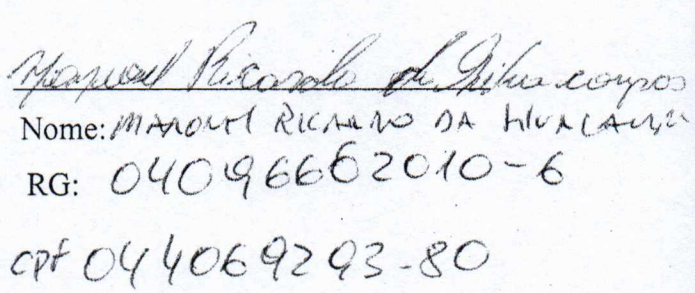 Manoel Ricardo da Silva campos
Nome: MANOEL RICARDO DA SILVA CAMPOS
RG: 04096662010-6
CPF 044069293-80